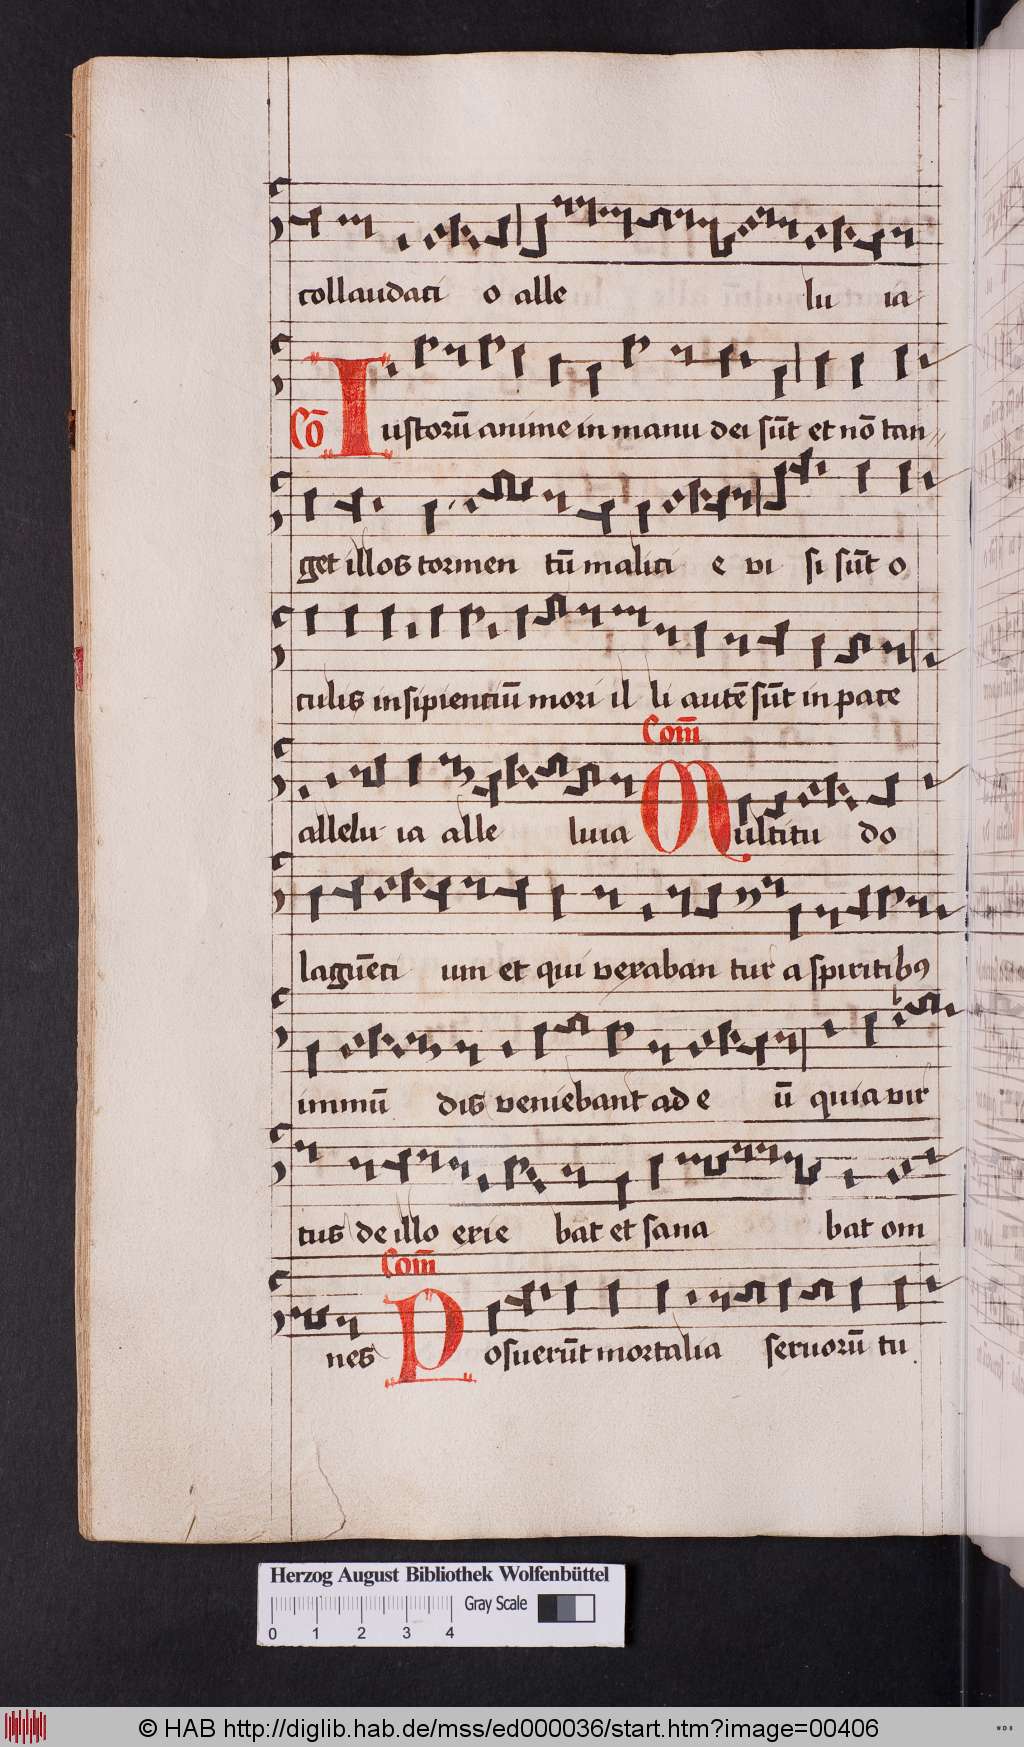 collaudaci o alle lu ia
Cō Iustorū anime in manu dei sūt et nō tan
get illos tormen tū malici e vi si sūt o
culis insipienciū mori il li autē sūt in pace
Com̄
allelu ia alle luia Multitu do
lagūeti um et qui vexaban tur a spiritibꝰ
immū dis veniebant ad e ū quia vir
tus de illo exie bat et sana bat om
Com̄
nes Posuerūt mortalia seruorū tu
Herzog August Bibliothek Wolfenbüttel
Gray Scale
0 1 2 3 4
© HAB http://diglib.hab.de/mss/ed000036/start.htm?image=00406